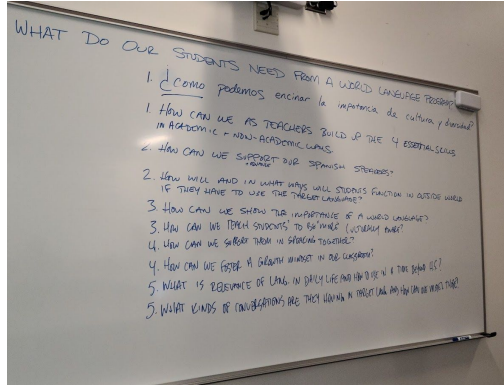 WHAT DO OUR STUDENTS NEED FROM A WORLD LANGUAGE PROGRAM?
1. ¿como podemos encinar la impotencia de cultura y diversidad?
1. HOW CAN WE AS TEACHERS BUILD UP THE 4 ESSENTIAL SKILLS
IN ACADEMIC + NON-ACADEMIC WAYS.
2. HOW CAN WE SUPPORT OUR SPANISH SPEAKERS?
2. HOW WILL AND IN WHAT WAYS WILL STUDENTS FUNCTION IN OUTSIDE WORLD
IF THEY HAVE TO USE THE TARGET LANGUAGE?
3. HOW CAN WE SHOW THE IMPORTANCE OF A WORLD LANGUAGE?
3. HOW CAN WE TEACH STUDENTS TO BE MORE CULTURALLY AWARE?
4. HOW CAN WE SUPPORT THEM IN SPEAKING TOGETHER?
4. HOW CAN WE FOSTER A GROWTH MINDSET IN OUR CLASSROOM?
5. WHAT IS RELEVANCE OF LANG. IN DAILY LIFE AND HOW TO USE IN A TIME BEYOND US?
5. WHAT KINDS OF CONVERSATIONS ARE THEY HAVING IN TARGET LANG AND HOW CAN WE